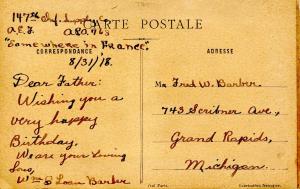 147th
CARTE POSTALE
A.E.F. A.P.O. 763
"Somewhere in France"
CORRESPONDANCE
ADRESSE
8/31/18.
Dear Father:
Wishing you a
very happy
Birthday,
We are your loving
Sons,
Wm & Loan Barber
Mr. Fred W. Barber.
743 Scribner Ave,
Grand Rapids,
Michigan.